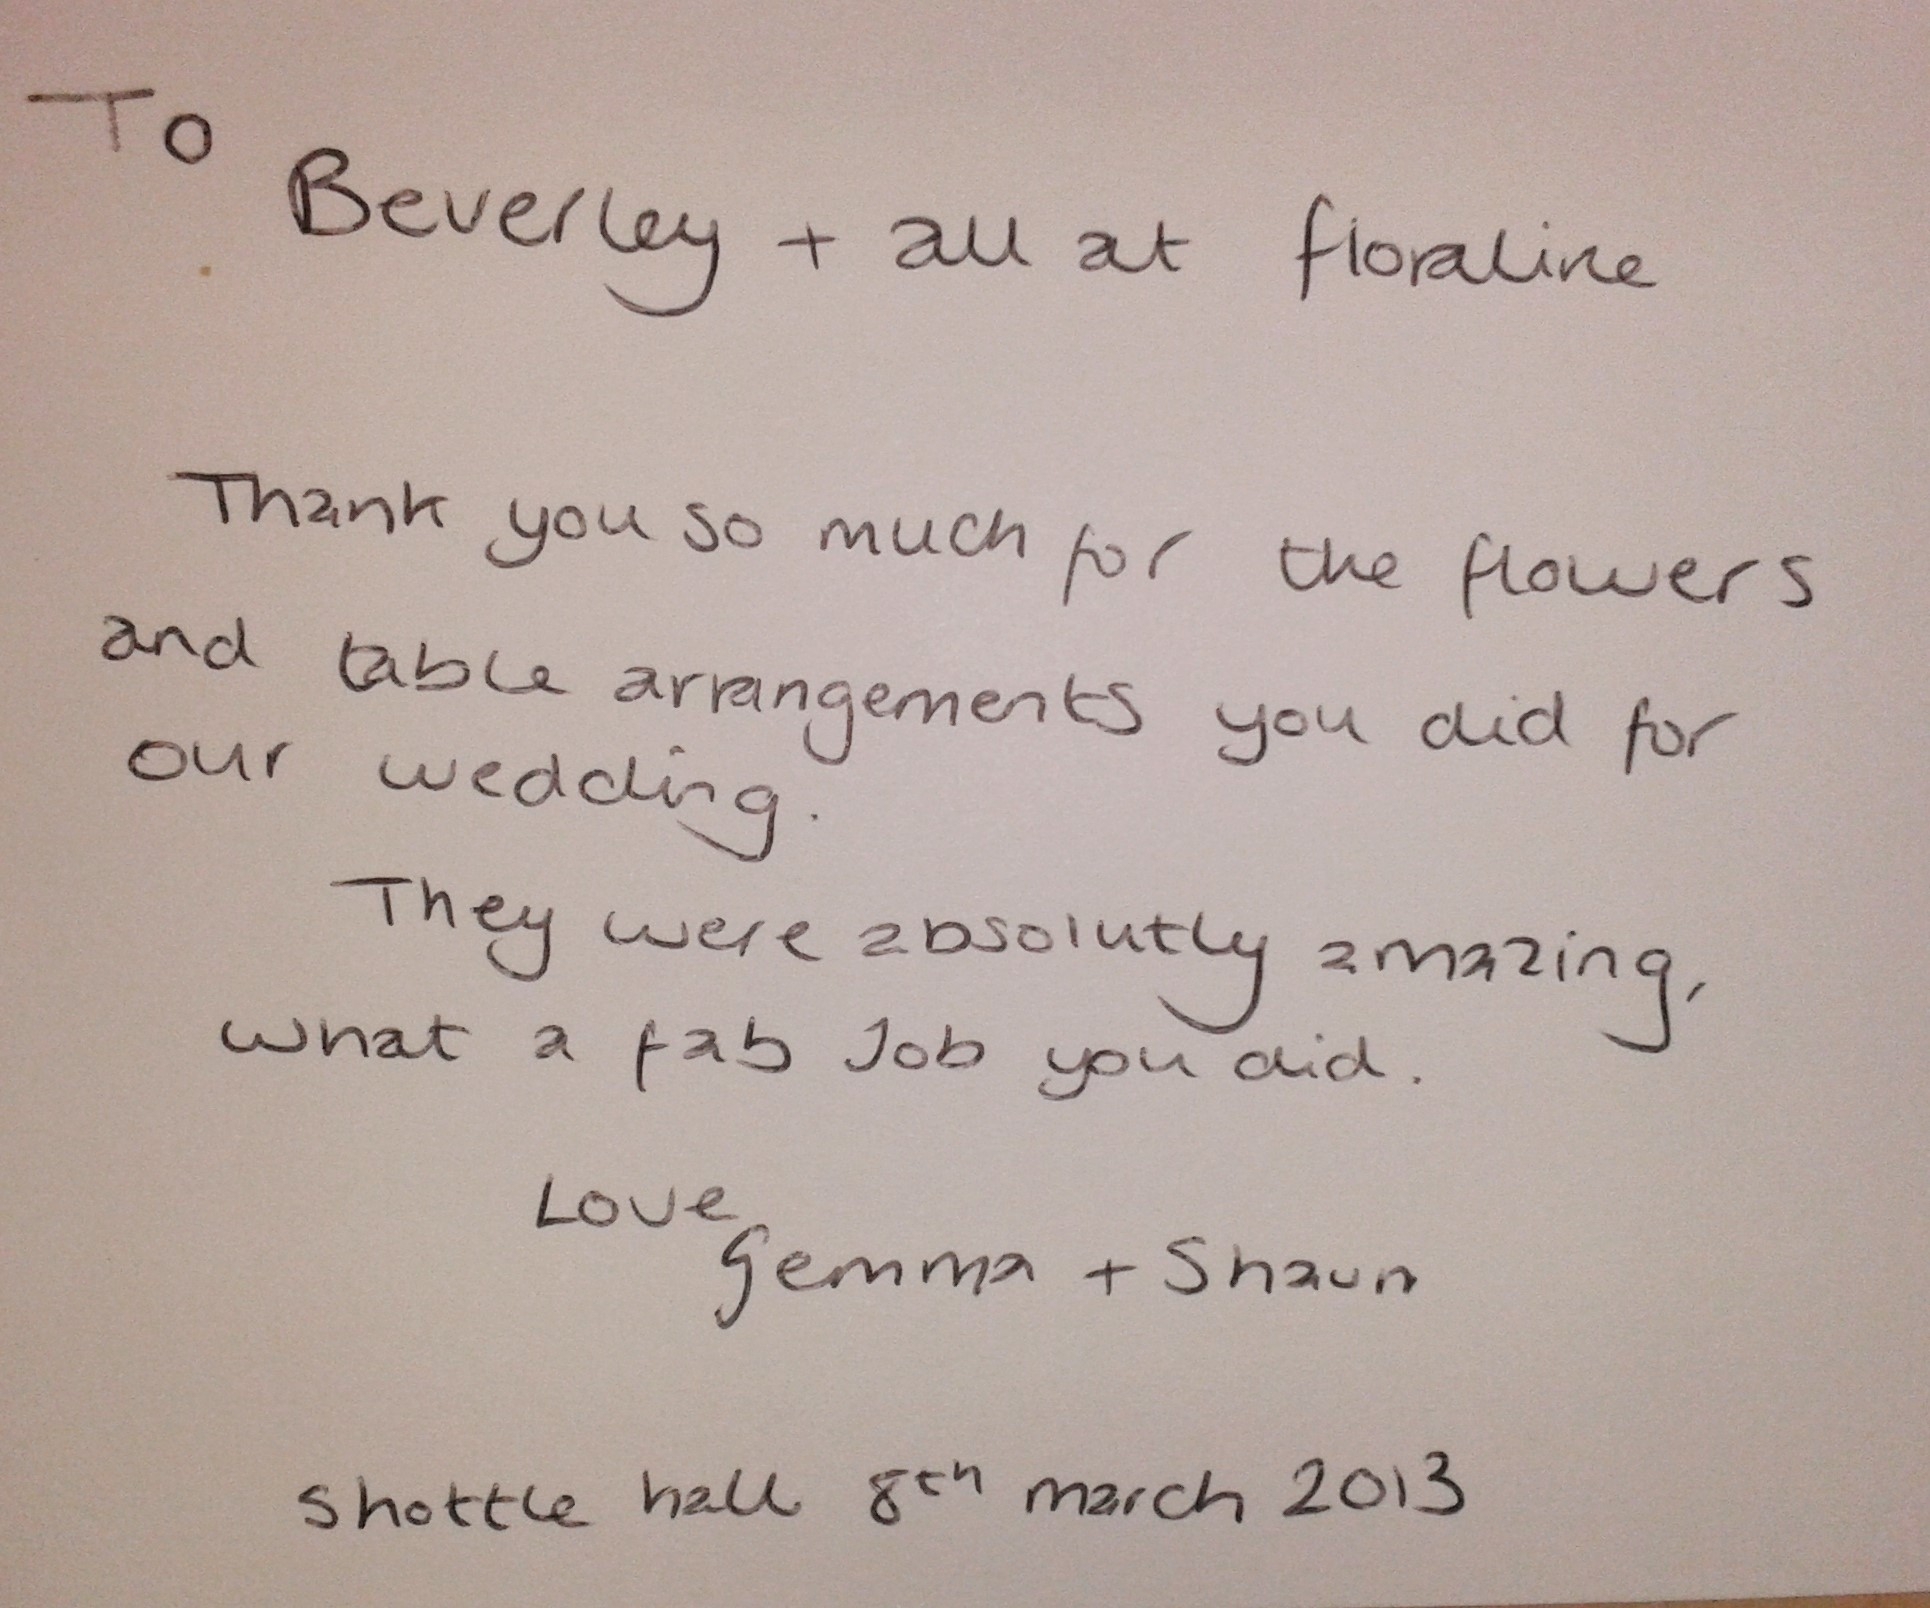 To
Beverley + all at floraline
Thank you so much for the flowers
and table arrangements you did for
our wedding.
They were absolutly amazing,
what a fab Job you did.
Love
Gemma + Shaun
Shottle hall 8th march 2013